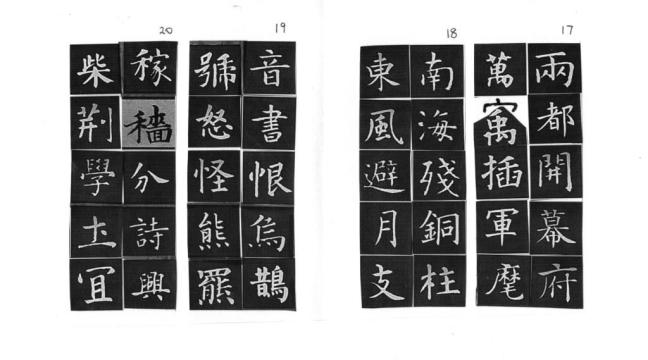 17
兩都開幕府
萬寓插軍麾
18
南海殘銅柱
東風避月支
19
音書恨烏鵲
號怒怪熊羆
20
稼穡分詩興
柴荆學土宜